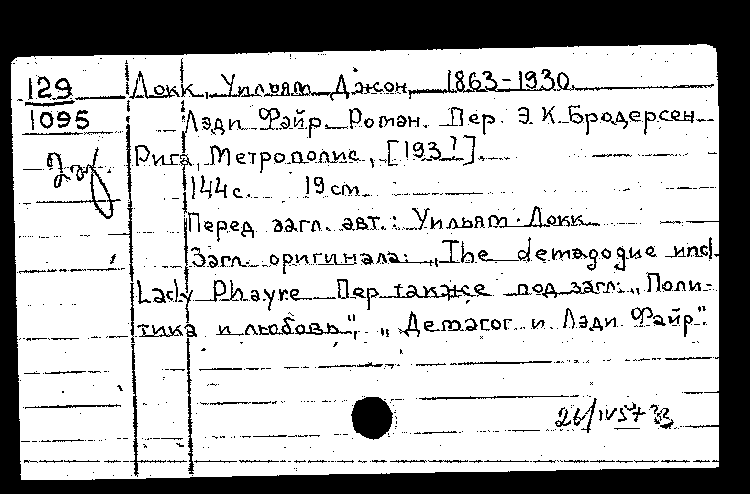 129 Локк, Уильям Джон, 1863-1930.
1095 Лэди Фэйр. Роман. Пер. Э.К. Бродерсен.
Рига, Метрополис, [193?].
144 с. 19 cm.
Перед загл. авт.: Уильям Локк.
Загл. оригинала: „The demagogue und
Lady Phayre Пер также под загл.: „Поли-
тика и любовь", „Демагог и Лэди Файр".